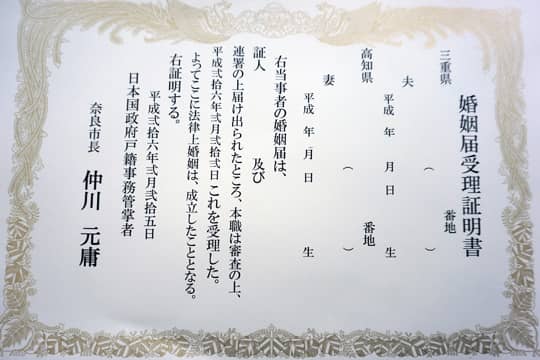 婚姻届受理証明書
三重県 番地
夫 ( )
平成 年 月 日 生
高知県 番地
妻 ( )
平成 年 月 日 生
右当事者の婚姻届は、
証人 及び
連署の上届け出られたところ、本職は審査の上、
平成弐拾六年弐月弐拾弐日これを受理した。
よってここに法律上婚姻は、成立したこととなる。
右証明する。
平成弐拾六年弐月弐拾五日
日本国政府戸籍事務管掌者
奈良市長 仲川 元庸